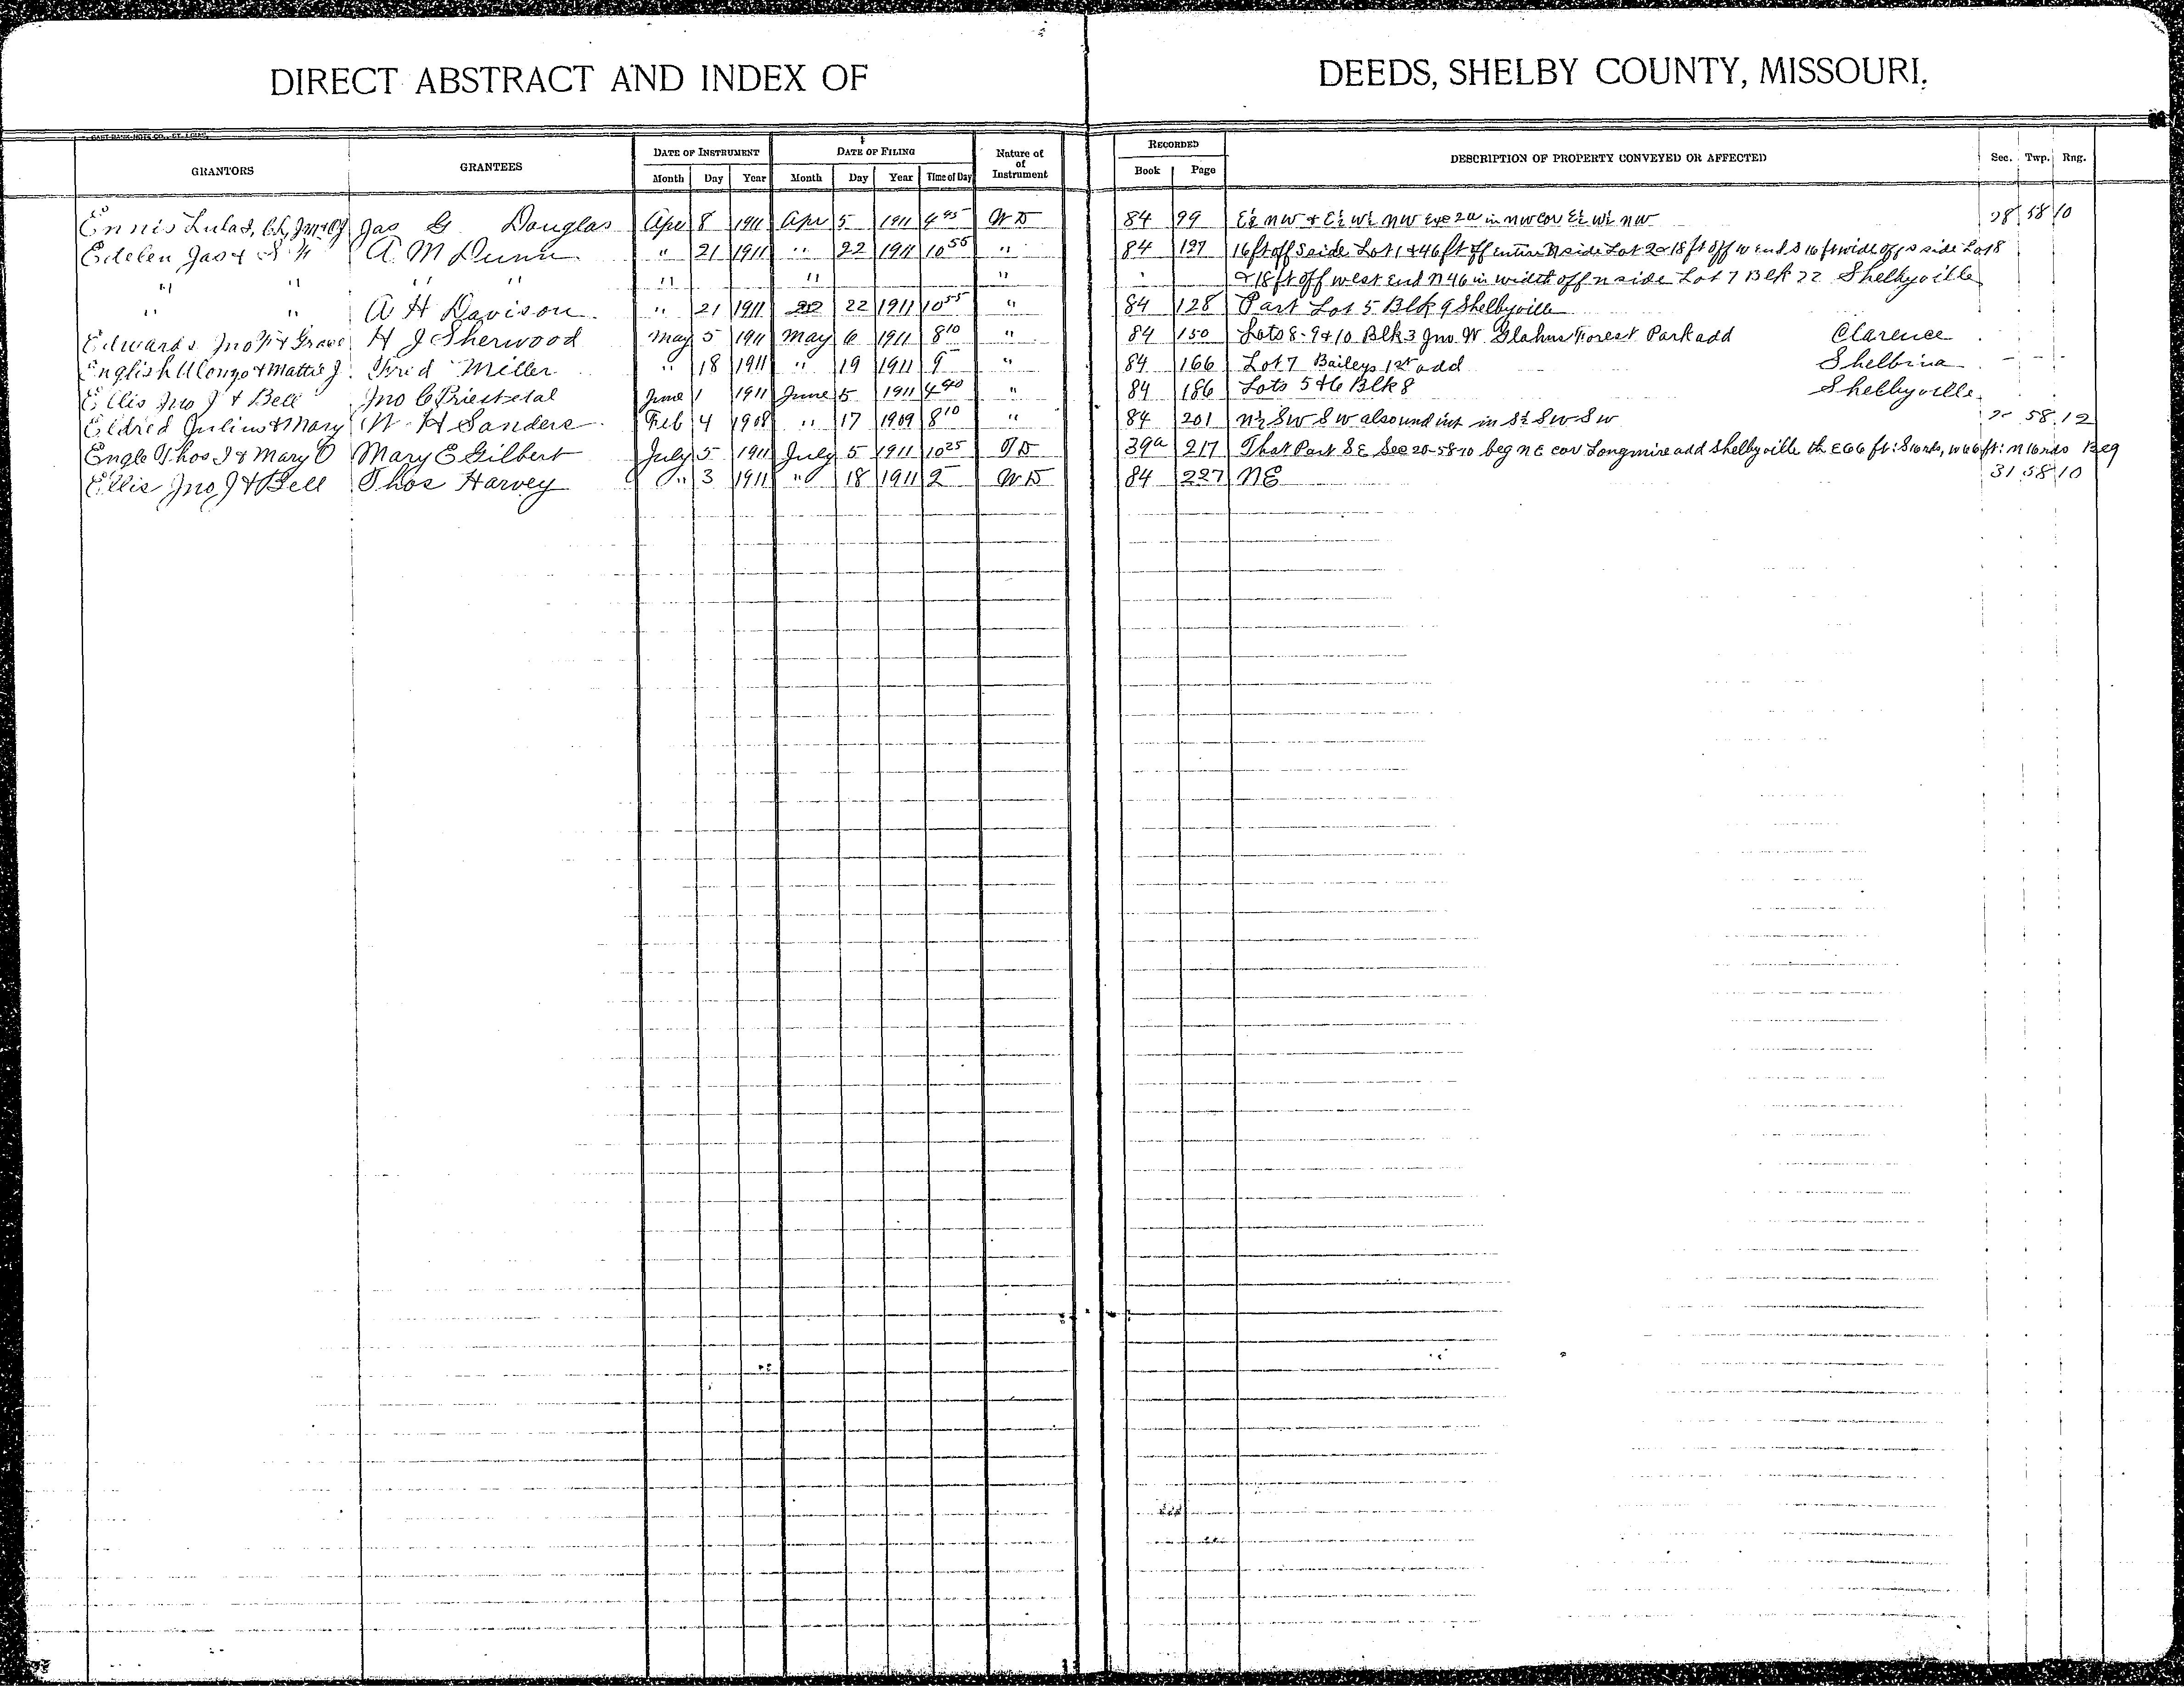 DIRECT ABSTRACT AND INDEX OF DEEDS, SHELBY COUNTY, MISSOURI.
GRANTORS GRANTEES DATE OF INSTRUMENT DATE OF FILING Nature of of Instrument RECORDED DESCRIPTION OF PROPERTY CONVEYED OR AFFECTED Sec. Twp. Rng.
Month Day Year Month Day Year Time of Day Book Page
Ennis Lula J, Jas G Douglas Apr 8 1911 Apr 5 1911 4 45 W D 84 99 E½ NW & E½ W½ NW Exc 2a in NW cor E½ W½ NW 28 58 10
Edelen Jas & A M Dunn " 21 1911 " 22 1911 10 55 " 84 127 16 ft off S side Lot 1 & 46 ft off entire N side Lot 2 & 18 ft off W end S 16 ft wide off S side Lot 8
" " " " " " " & 18 ft off west end N 46 in width off N side Lot 7 Blk 22 Shelbyville
" " A H Davison " 21 1911 22 22 1911 10 55 " 84 128 Part Lot 5 Blk 9 Shelbyville
Edwards Jno & Grace H J Sherwood May 5 1911 May 6 1911 8 10 " 84 150 Lots 8-9 & 10 Blk 3 Jno W Glahns Forest Park add Clarence
English Alonzo & Mattie J. Fred Miller " 18 1911 " 19 1911 9 - " 84 166 Lot 7 Baileys 1st add Shelbina
Ellis Jno J & Bell Jno C Priestetal June 1 1911 June 5 1911 4 40 " 84 186 Lots 5 & 6 Blk 8 Shelbyville
Eldred Julius & Mary W H Sanders Feb 4 1908 " 17 1909 8 10 " 84 201 N½ SW SW also und int in S½ SW SW 58 12
Engle Thos J & Mary O Mary E Gilbert July 5 1911 July 5 1911 10 25 T D 39a 217 That Part SE Sec 20-58-10 beg NE cor Longmire add Shelbyville th E 66 ft: S 16 rds, W 66 ft: N 16 rds Beg
Ellis Jno J & Bell Thos Harvey " 3 1911 " 18 1911 2 - W D 84 227 NE 31 58 10